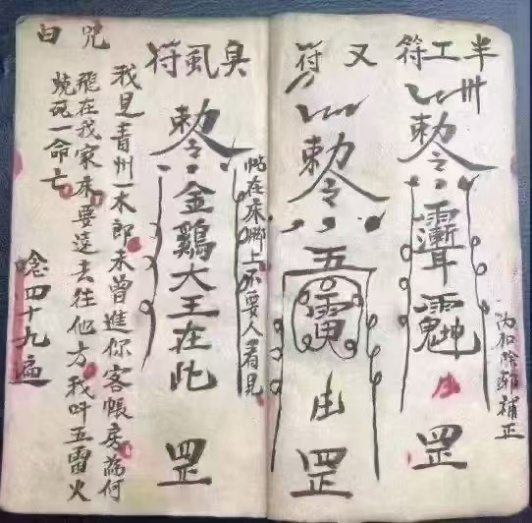 半工符
勅令
罡
內加除邪補正
又符
勅令
五雷
罡
臭虱符
帖在床腳上不要人看見
勅令
金鷄大王在此
罡
咒曰
我是青州一木郎未曾進你客帳房為何
飛在我家床要速去往他方我叫五雷火
燒死一命亡
唸四十九遍